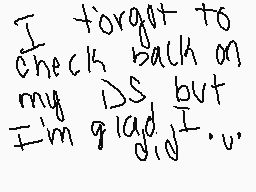 I forgot to
check back on
my DS but
I'm glad I
did •u•